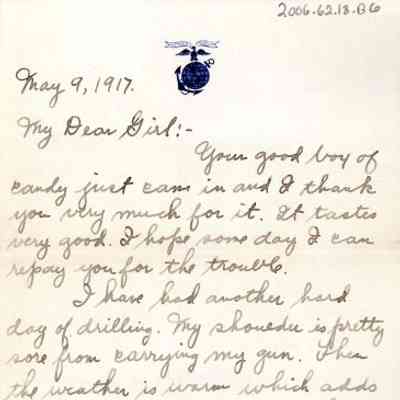 2006.62.18.B6
May 9, 1917.
My Dear Girl:-
Your good box of
candy just came in and I thank
you very much for it. It tastes
very good. I hope some day I can
repay you for the trouble.
I have had another hard
day of drilling. My shoueder is pretty
sore from carrying my gun. Then
the weather is warm which adds